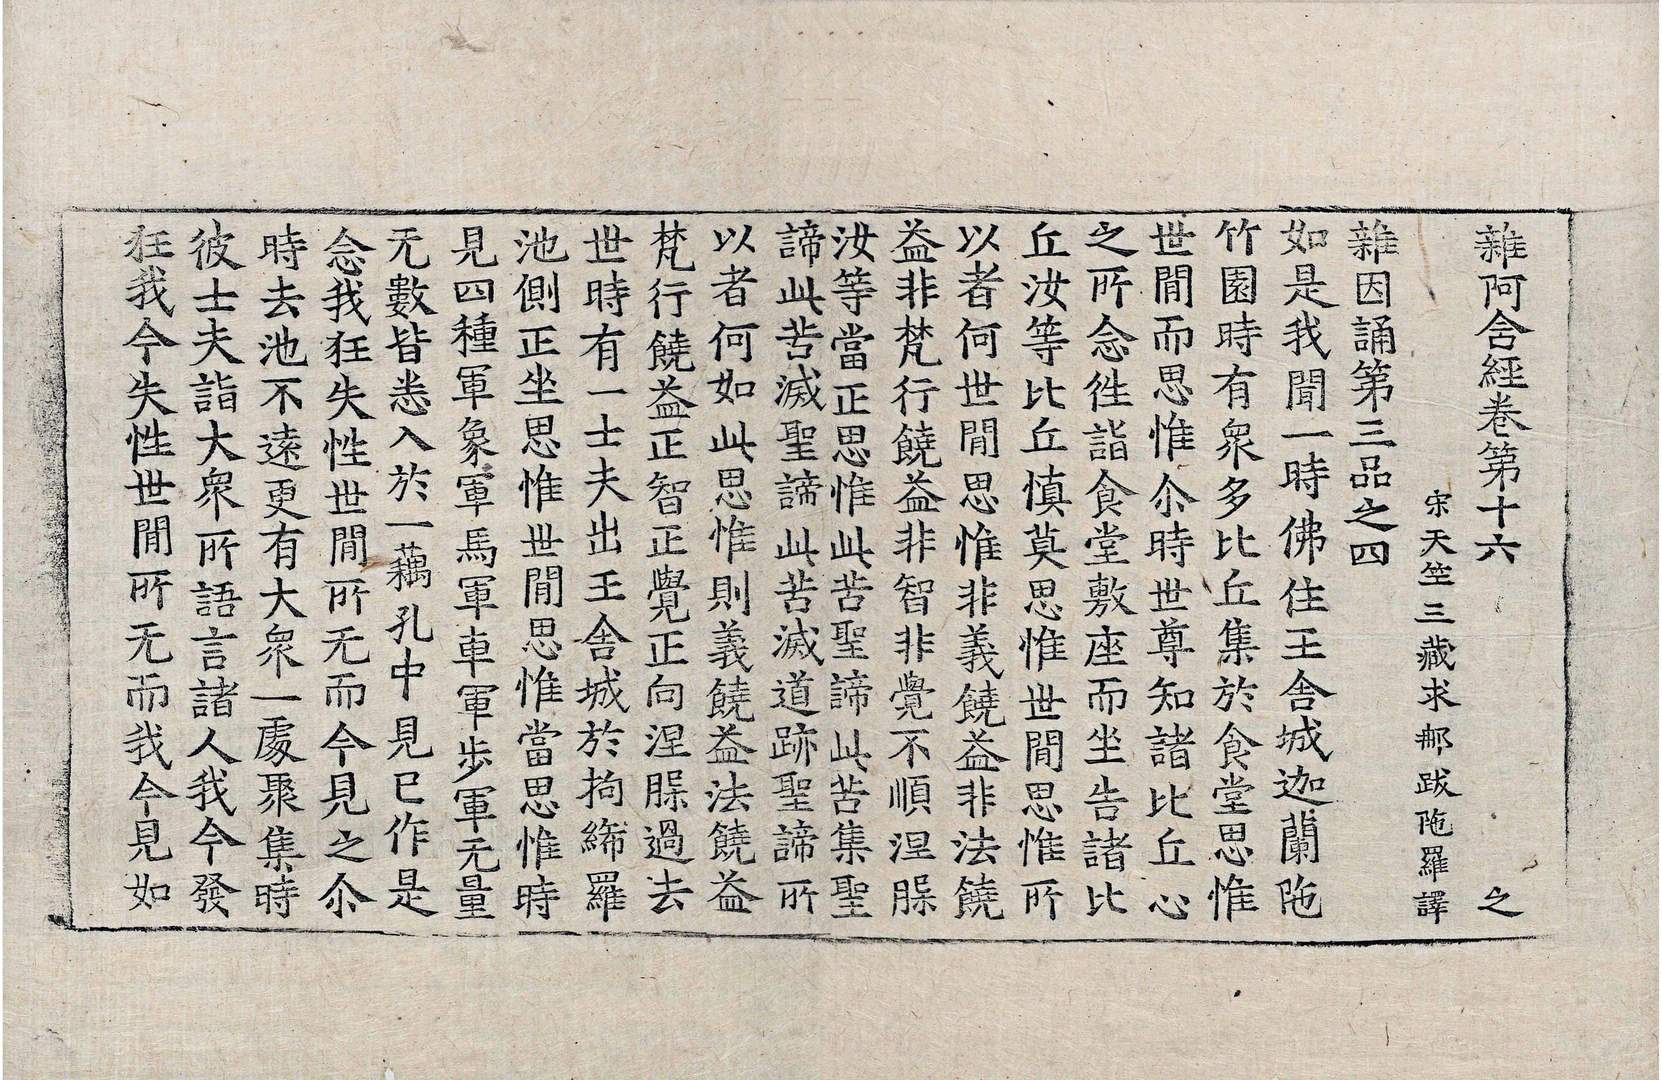 雜阿含經卷第十六　之
宋天竺三藏求郍跋陁羅譯
雜因誦第三品之四
如是我聞一時佛住王舍城迦蘭陁
竹園時有衆多比丘集於食堂思惟
世間而思惟尒時世尊知諸比丘心
之所念徃詣食堂敷座而坐告諸比
丘汝等比丘慎莫思惟世間思惟所
以者何世間思惟非義饒益非法饒
益非梵行饒益非智非覺不順涅槃
汝等當正思惟此苦聖諦此苦集聖
諦此苦滅聖諦此苦滅道跡聖諦所
以者何如此思惟則義饒益法饒益
梵行饒益正智正覺正向涅槃過去
世時有一士夫出王舍城於拘絺羅
池側正坐思惟世間思惟當思惟時
見四種軍象軍馬軍車軍步軍无量
无數皆悉入於一藕孔中見已作是
念我狂失性世間所无而今見之尒
時去池不遠更有大衆一處聚集時
彼士夫詣大衆所語言諸人我今發
狂我今失性世間所无而我今見如